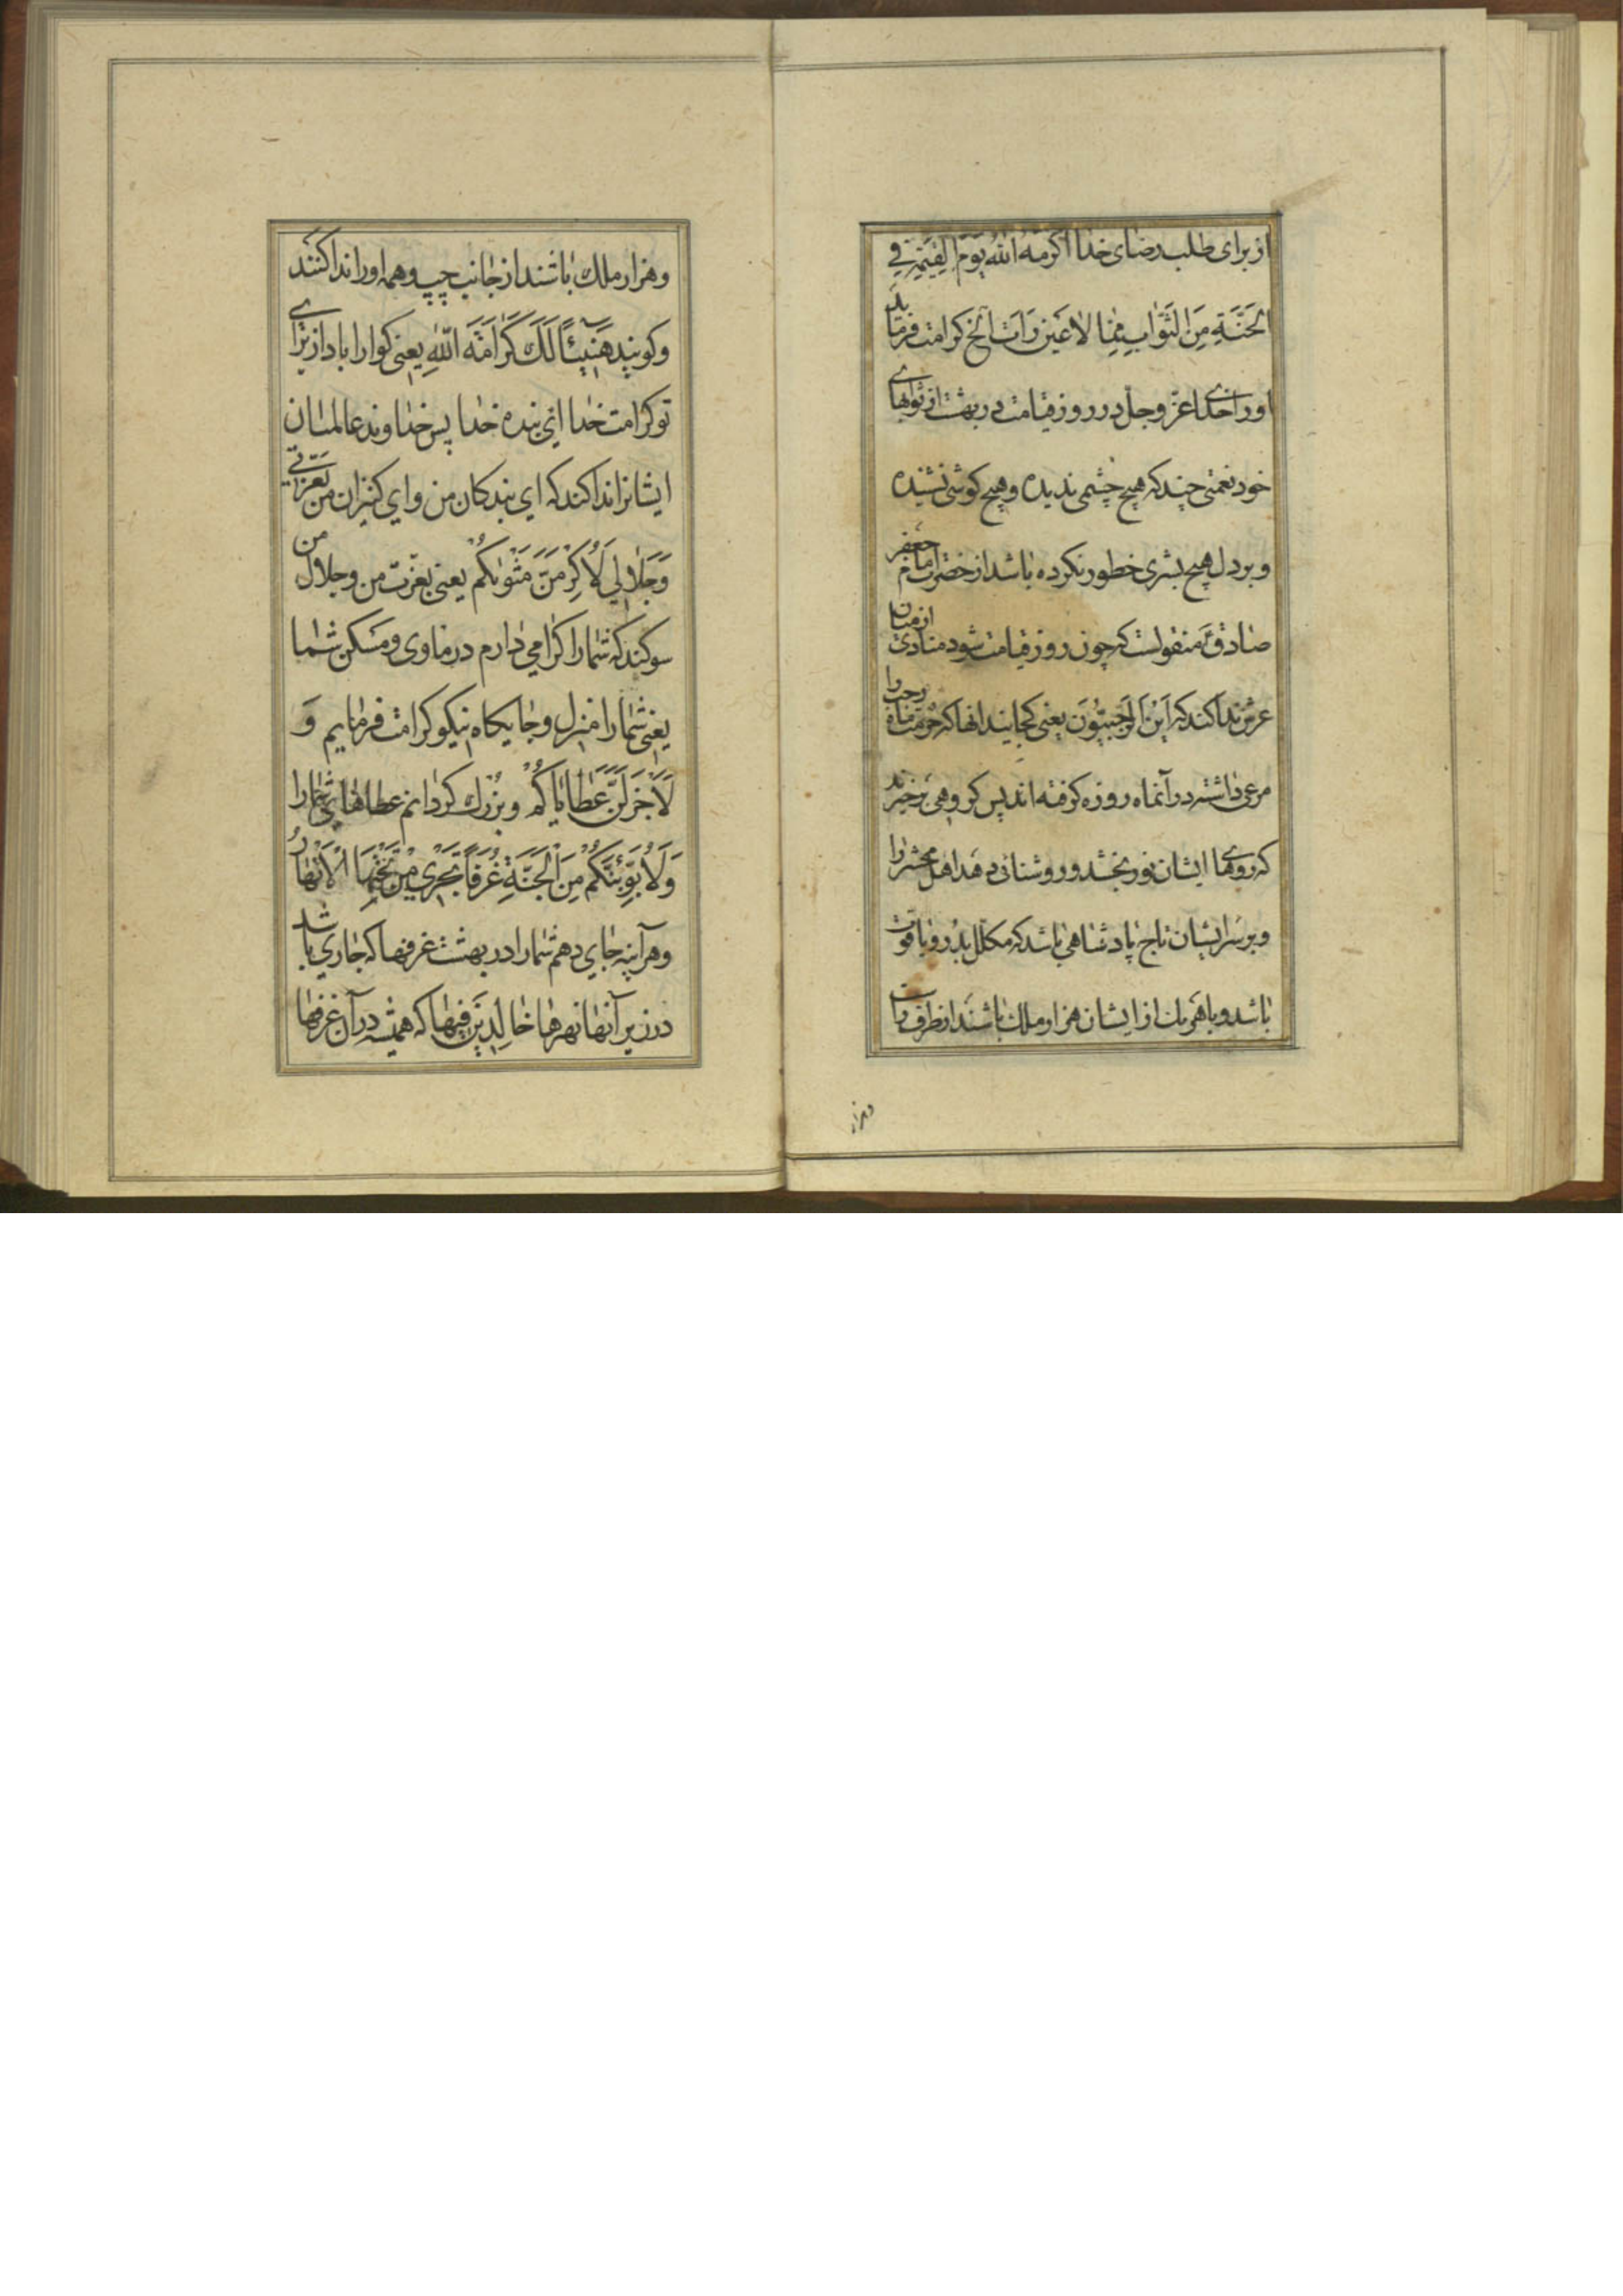 از برای طلب رضای خدا اَکْرَمَهُ اللّٰهُ یَوْمَ الْقِیٰمَةِ فِي
الْجَنَّةِ مِنَ الثَّوابِ مِمّا لا عَیْنٌ رَأَتْ الخ کرامت فرماید
او را خدای عزّ و جلّ در روز قیامت در بهشت از ثوابهای
خود نعمتی چند که هیچ چشمی ندیده و هیچ کوشی نشنیده
و بر دل هیچ بشری خطور نکرده باشد از حضرت امام جعفر
صادقؑ منقولست که چون روز قیامت شود منادی از میان
عرش ندا کند که اَیْنَ الرَّجَبِیُّونَ یعنی کجایند آنها که حرمت ماه رجب را
مرعی داشته در آنماه روزه کرفته اند پس کروهی برخیزند
که روی ها ایشان نور بخشد و روشنائی دهد اهل محشر را
و بر سر ایشان تاج پادشاهی باشد که مکلّل بدُر و یاقوت
باشد و با هر یک از ایشان هزار ملک باشند از طرف راست
وهزار
و هزار ملک باشند از جانب چپ و همه او را ندا کنند
و کویند هَنِیئًا لَكَ کَرامَةَ اللّٰهِ یعنی کوارا باد از برای
تو کرامت خدا ای بنده خدا پس خداوند عالمیان
ایشانرا ندا کند که ای بندکان من و ای کنیزان من بعزّتي
وَجَلالِي لَأُکْرِمَنَّ مَثْوٰیکُمْ یعنی بعزّت من و جلال من
سوکند که شما را کرامی دارم در ماوی و مسکن شما
یعنی شما را منزل و جایکاه نیکو کرامت فرمایم وَ
لَاُجْزِلَنَّ عَطایاکُمْ و بزرک کردانم عطاهای شما را
وَلَاُبَوِّئَنَّکُمْ مِنَ الْجَنَّةِ غُرَفاً تَجْرِي مِنْ تَحْتِهَا الْاَنْهارُ
و هر آینه جای دهم شما را در بهشت غرفها که جاری باشد
در زیر آنها نهرها خالِدِینَ فِیها که همیشه در آن غرفها